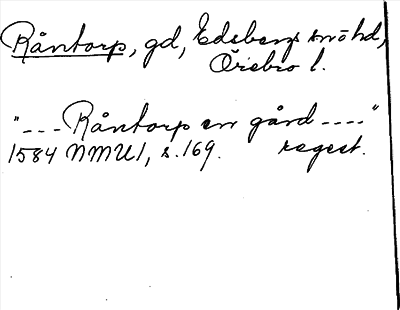 Råntorp, gd, Edsbergs sn o hd,
Örebro l.
"--- Råntorp en gård ----"
1584 NMU 1, s. 169. regest.